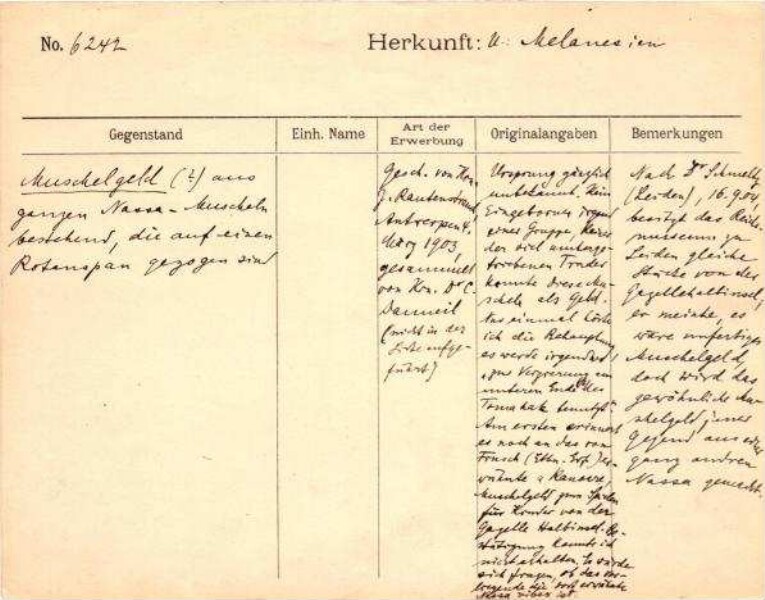 No. 6242
Herkunft: U. Melanesien
Gegenstand
Einh. Name
Art der
Erwerbung
Originalangaben
Bemerkungen
Muschelgeld (?) aus
ganzen Nassa-Muscheln
bestehend, die auf einen
Rotanspan gezogen sind
Gesch. von Hrn.
J. Rautenstrauch,
Antwerpen 4.
März 1903,
gesammelt
von Hrn. Dr C.
Danneil
(nicht in der
Liste aufge-
führt)
Ursprung gänzlich
unbekannt. Kein
Eingeborner irgend
einer Gruppe, keiner
der viel umherge-
triebenen Trader
kannte diese Mu-
scheln als Geld.
Nur einmal hörte
ich die Behauptung
es werde irgendwo
zur Verzierung am
unteren Ende des
Tomahak benutzt.
Am ersten erinnert
es noch an das von
Finsch (Ethn. Erf.) er-
wähnte
Muschelgeld zum Spielen
für Kinder von der
Gazelle Halbinsel. Be-
stätigung konnte ich
nicht erhalten. Es würde
sich fragen, ob das vor-
liegende die dort erwähnte
Nassa vibex ist.
Nach Dr Schmeltz
(Leiden), 16.9.04,
besitzt das Reichs-
museum zu
Leiden gleiche
Stücke von der
Gazellehalbinsel;
er meinte, es
wäre unfertiges
Muschelgeld,
doch wird das
gewöhnliche Mu-
schelgeld jener
Gegend aus einer
ganz andren
Nassa gemacht.